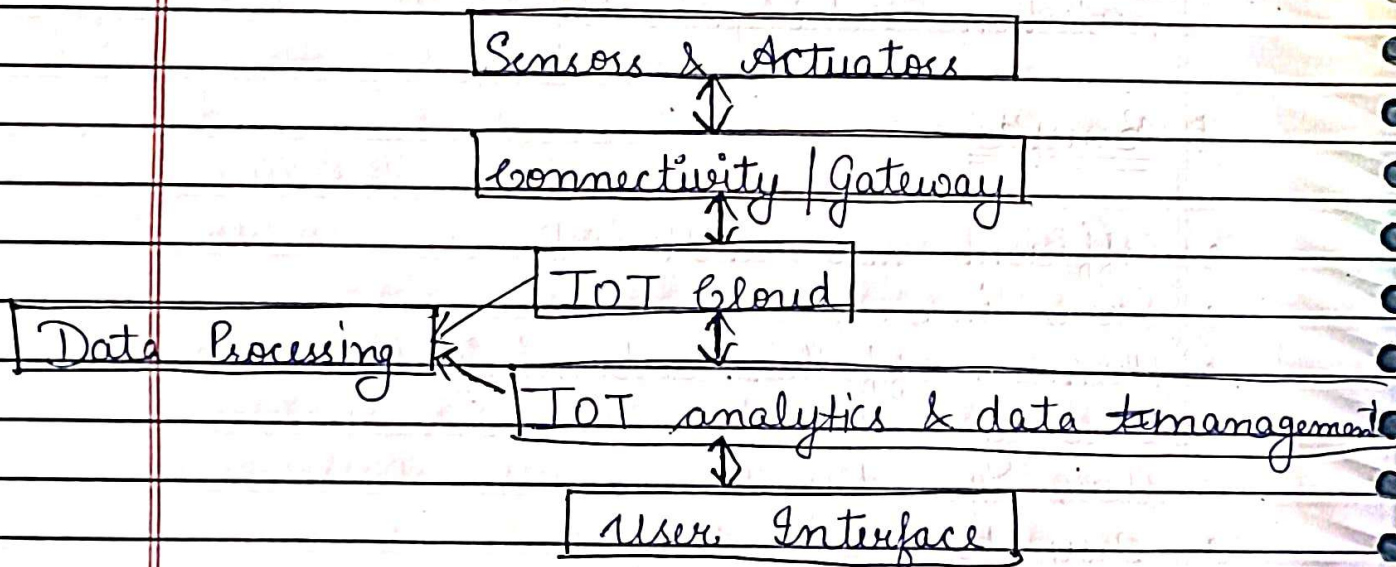 Sensors & Actuators
Connectivity | Gateway
IOT Cloud
Data Processing
IOT analytics & data management
User Interface